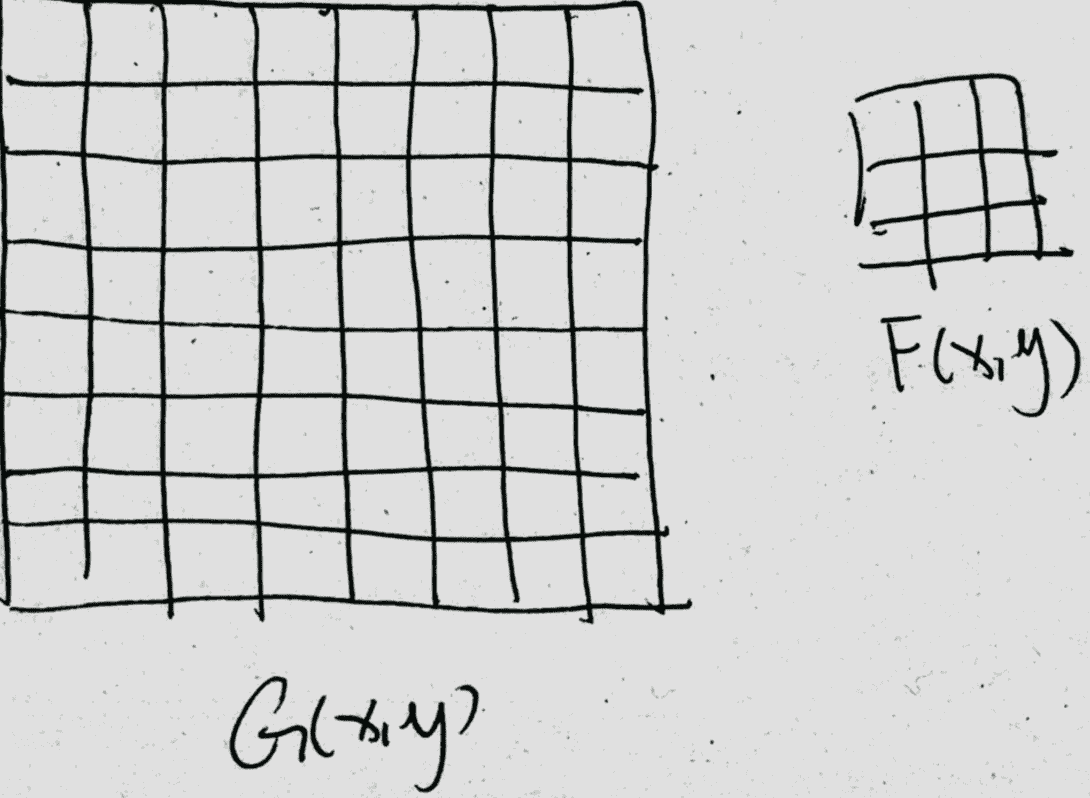 F(x,y)
G(x,y)